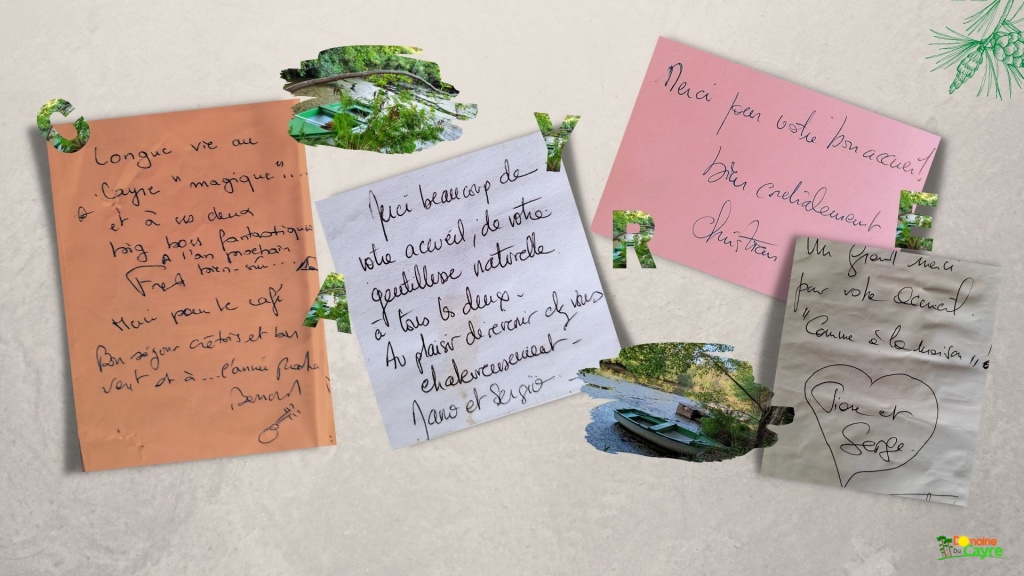 C
A
Y
R
E
Longue vie au
Cayre "magique"....
et à vos deux
big boss fantastiques
A l'an prochain
bien-sûr...
Fred
Merci pour le café
Bon séjour crétois et bon
vent et à...l'année proche
Benoit
Merci beaucoup de
votre accueil, de votre
gentillesse naturelle
à tous les deux.
Au plaisir de revenir chez vous
chaleureusement-
Jano et Sergio-
Merci pour votre bon accueil!
bien cordialement
Christian
Un grand merci
pour votre accueil.
"Comme à la maison",,
et
Serge.
Domaine
Du Cayre